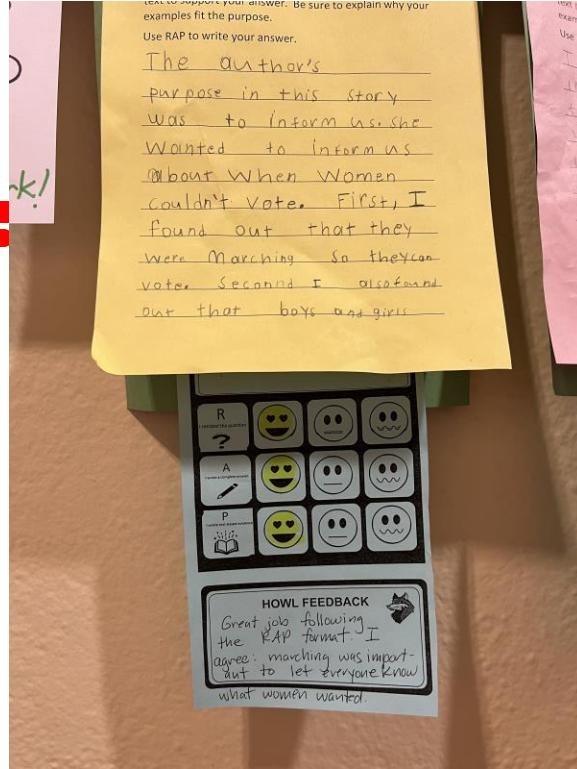 text to support your answer. Be sure to explain why your
examples fit the purpose.
Use RAP to write your answer.
The author's
purpose in this story
was to inform us. she
Wanted to inform us
about When Women
couldn't vote. First, I
found out that they
were Marching so theycan
vote. Seconnd I alsofound
out that boys and girls
rk!
text
exam
Use
R
?
A
P
HOWL FEEDBACK
Great job following
the RAP format. I
agree: marching was import-
ant to let everyone know
what women wanted.